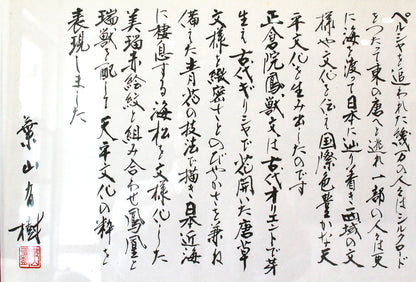 ペルシャを追われた幾万の人々はシルクロード
をつたって東の唐へ逃れ一部の人々は更
に海を渡て日本に辿り着き西域の文
様や文化を伝え国際色豊かな天
平文化を生み出したのです
正倉院鳳獣文は古代オリエントで芽
生え古代ギリシャで花開いた唐草
文様を緻密さとのびやかさを兼ね
備えた青花の技法で描き日本近海
に棲息する海松を文様化した
美瑠赤絵紋と組み合わせ鳳凰と
瑞獣を配して天平文化の粋を
表現しました
葉山有樹